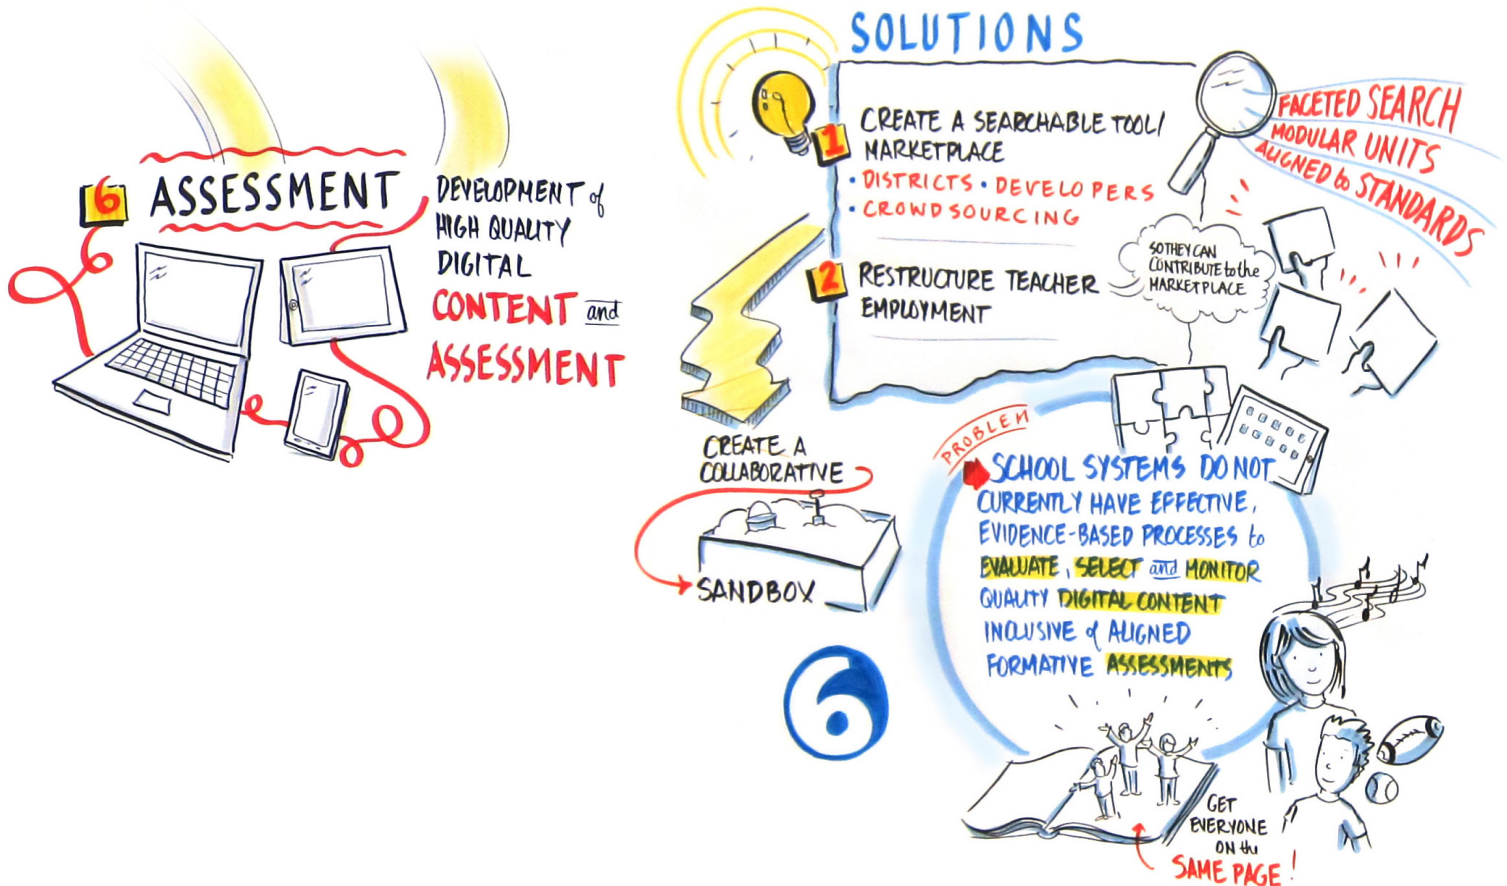 6 ASSESSMENT
DEVELOPMENT of
HIGH QUALITY
DIGITAL
CONTENT and
ASSESSMENT
SOLUTIONS
1 CREATE A SEARCHABLE TOOL/
MARKETPLACE
• DISTRICTS • DEVELOPERS
• CROWDSOURCING
2 RESTRUCTURE TEACHER
EMPLOYMENT
SO THEY CAN
CONTRIBUTE to the
MARKETPLACE
FACETED SEARCH
MODULAR UNITS
ALIGNED to STANDARDS
CREATE A
COLLABORATIVE
SANDBOX
6
PROBLEM
SCHOOL SYSTEMS DO NOT
CURRENTLY HAVE EFFECTIVE,
EVIDENCE-BASED PROCESSES to
EVALUATE, SELECT and MONITOR
QUALITY DIGITAL CONTENT
INCLUSIVE of ALIGNED
FORMATIVE ASSESSMENTS
GET
EVERYONE
ON the
SAME PAGE!